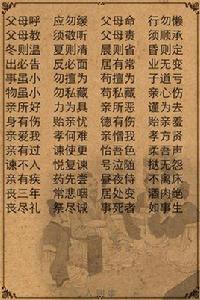 父母呼 应勿缓 父母命 行勿懒
父母教 须敬听 父母责 须顺承
冬则温 夏则凊 晨则省 昏则定
出必告 反必面 居有常 业无变
事虽小 勿擅为 苟擅为 子道亏
物虽小 勿私藏 苟私藏 亲心伤
亲所好 力为具 亲所恶 谨为去
身有伤 贻亲忧 德有伤 贻亲羞
亲爱我 孝何难 亲憎我 孝方贤
亲有过 谏使更 怡吾色 柔吾声
谏不入 悦复谏 号泣随 挞无怨
亲有疾 药先尝 昼夜侍 不离床
丧三年 常悲咽 居处变 酒肉绝
丧尽礼 祭尽诚 事死者 如事生